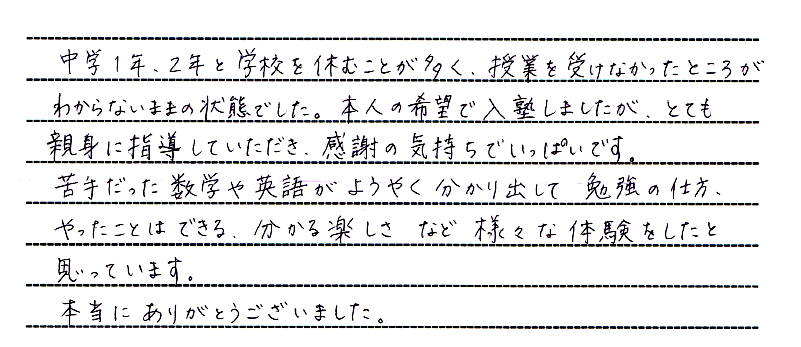 中学1年、2年と学校を休むことが多く、授業を受けなかったところが
わからないままの状態でした。本人の希望で入塾しましたが、とても
親身に指導していただき、感謝の気持ちでいっぱいです。
苦手だった数学や英語がようやく分かり出して勉強の仕方、
やったことはできる、分かる楽しさなど様々な体験をしたと
思っています。
本当にありがとうございました。